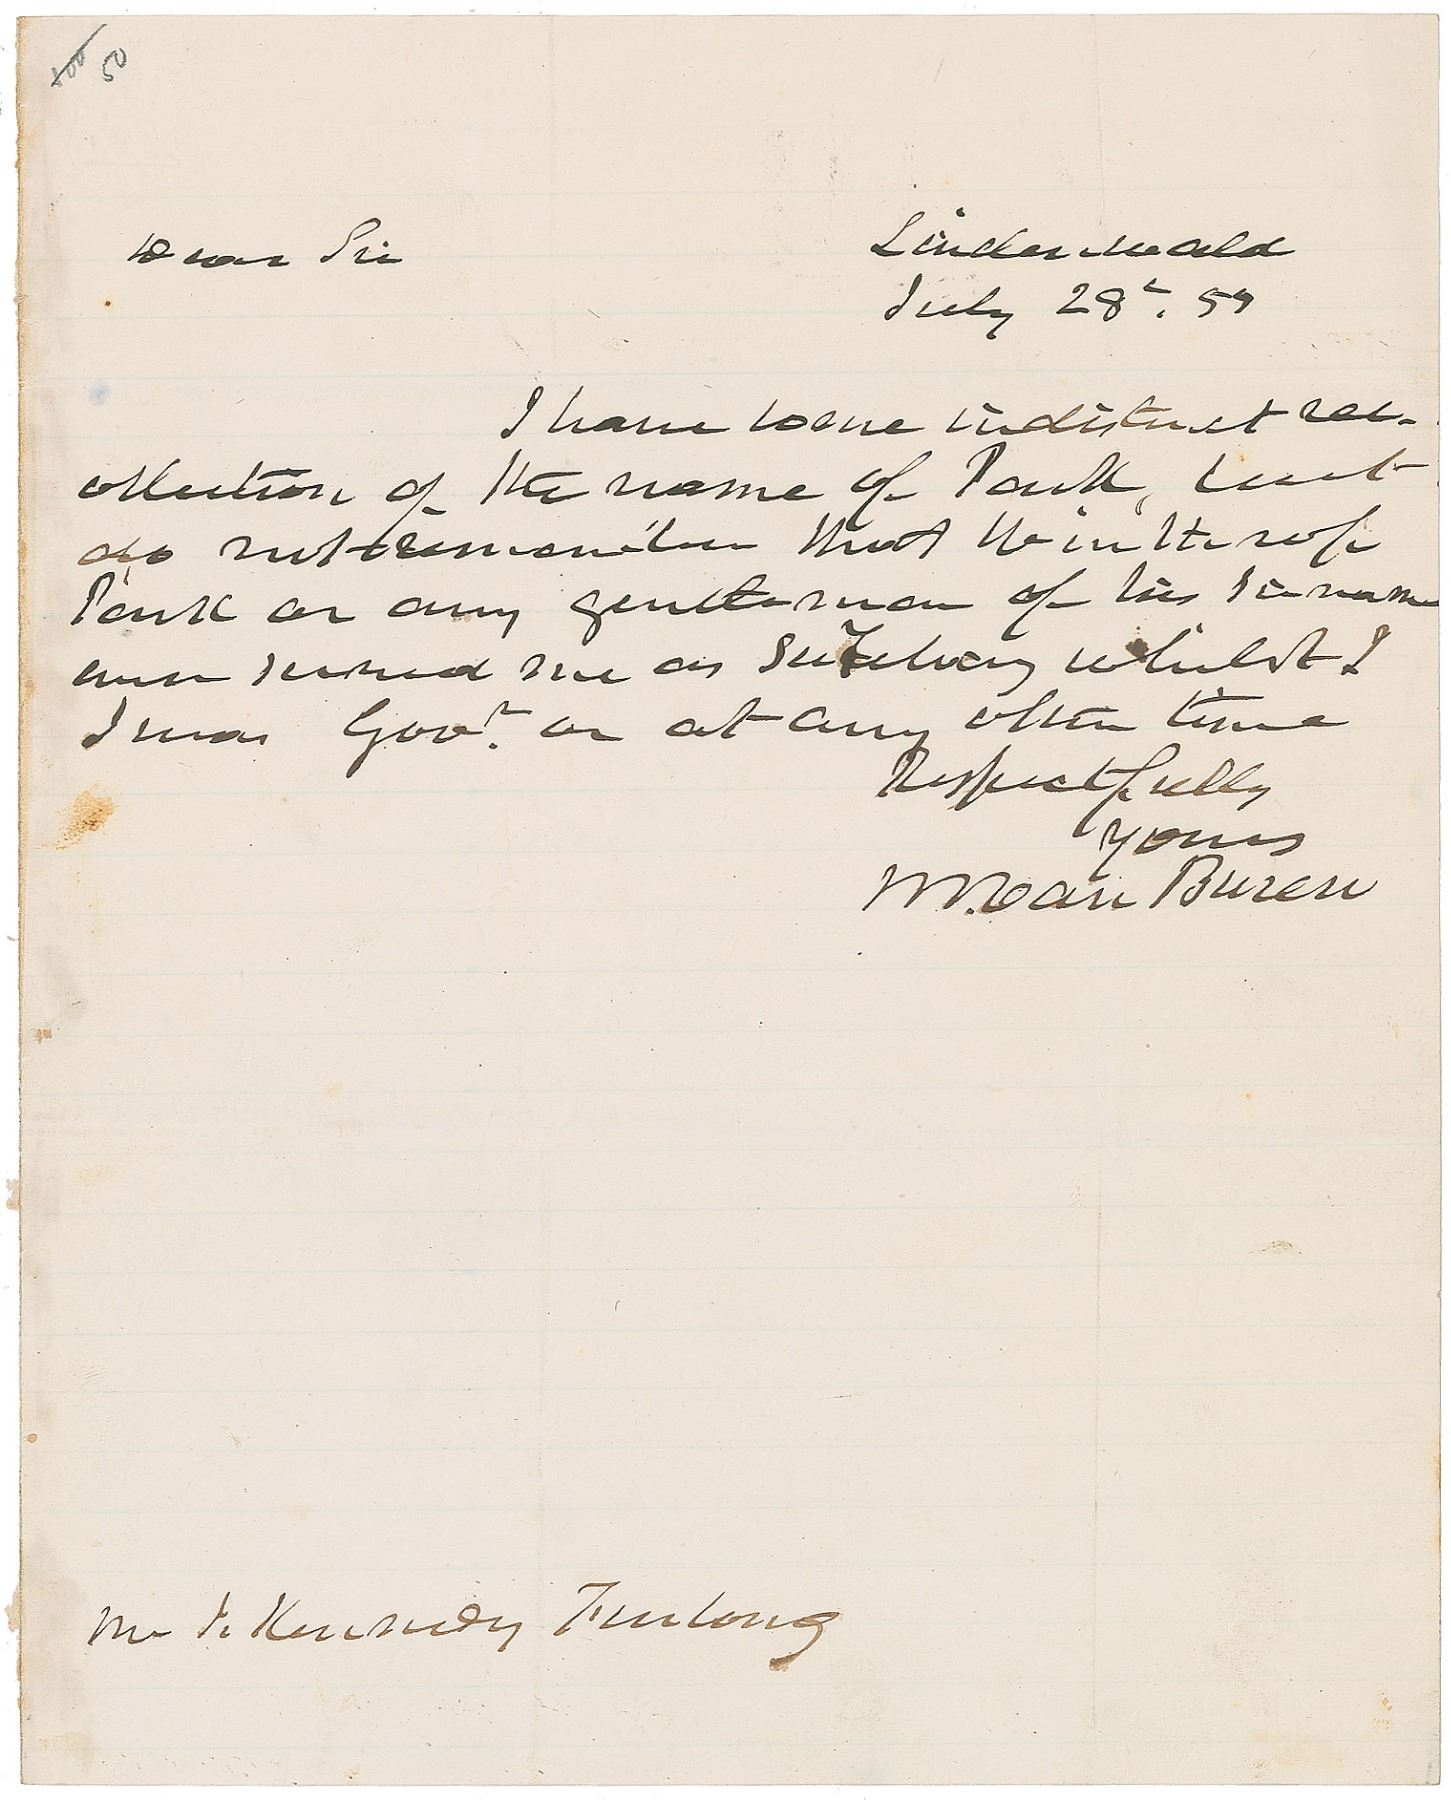 50
Dear Sir
Lindenwald
July 28th. 59
I have some indistinct rec-
ollection of the name of Park, but
do not remember that Winthrop
Park or any gentleman of his Sirname
ever served me as Sec'y whilst I
I was Govr. or at any other time
Respectfully
yours
M. Van Buren
Mr Kennedy Furlong